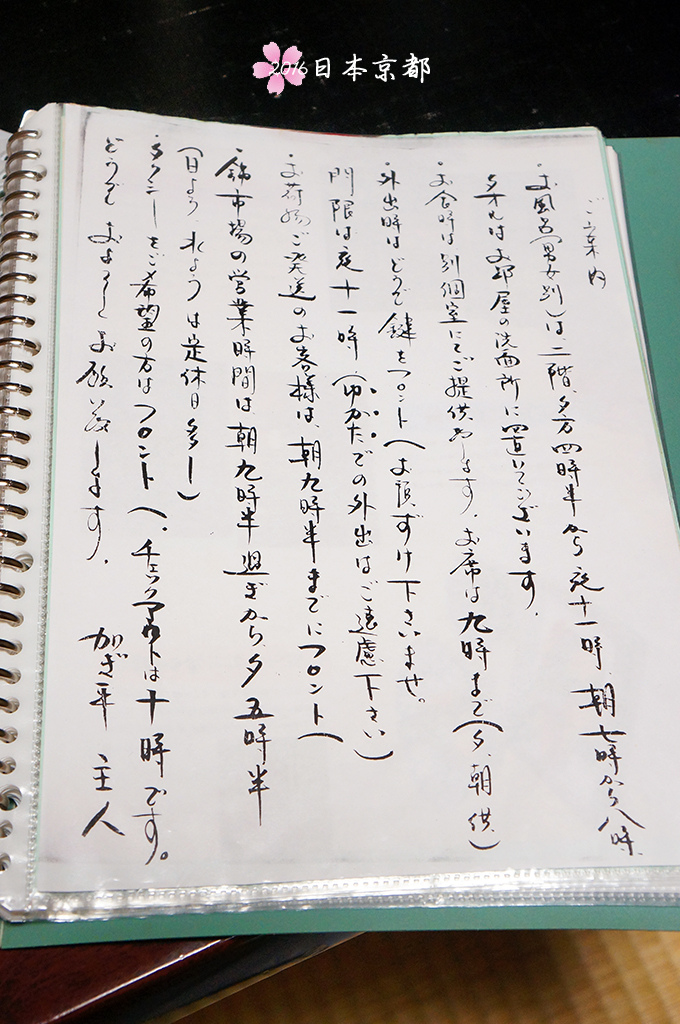 2016日本京都
ご案内
・お風呂(男女別)は、二階、夕方四時半から夜十一時、朝七時から八時、
タオルはお部屋の洗面所に置いてございます。
・お食時は別個室にてご提供します。お席は九時まで(夕、朝供)
・外出時はどうぞ鍵をフロントへお預ずけ下さいませ。
門限は夜十一時(ゆかたでの外出はご遠慮下さい)
・お荷物ご発送のお客様は、朝九時半までにフロントへ
・錦市場の営業時間は、朝九時半過ぎから、夕五時半
(日よう、水ようは定休日多し)
・タクシーをご希望の方はフロントへ、チェックアウトは十時です。
どうぞ よろしくお願い致します。 かぎ平 主人